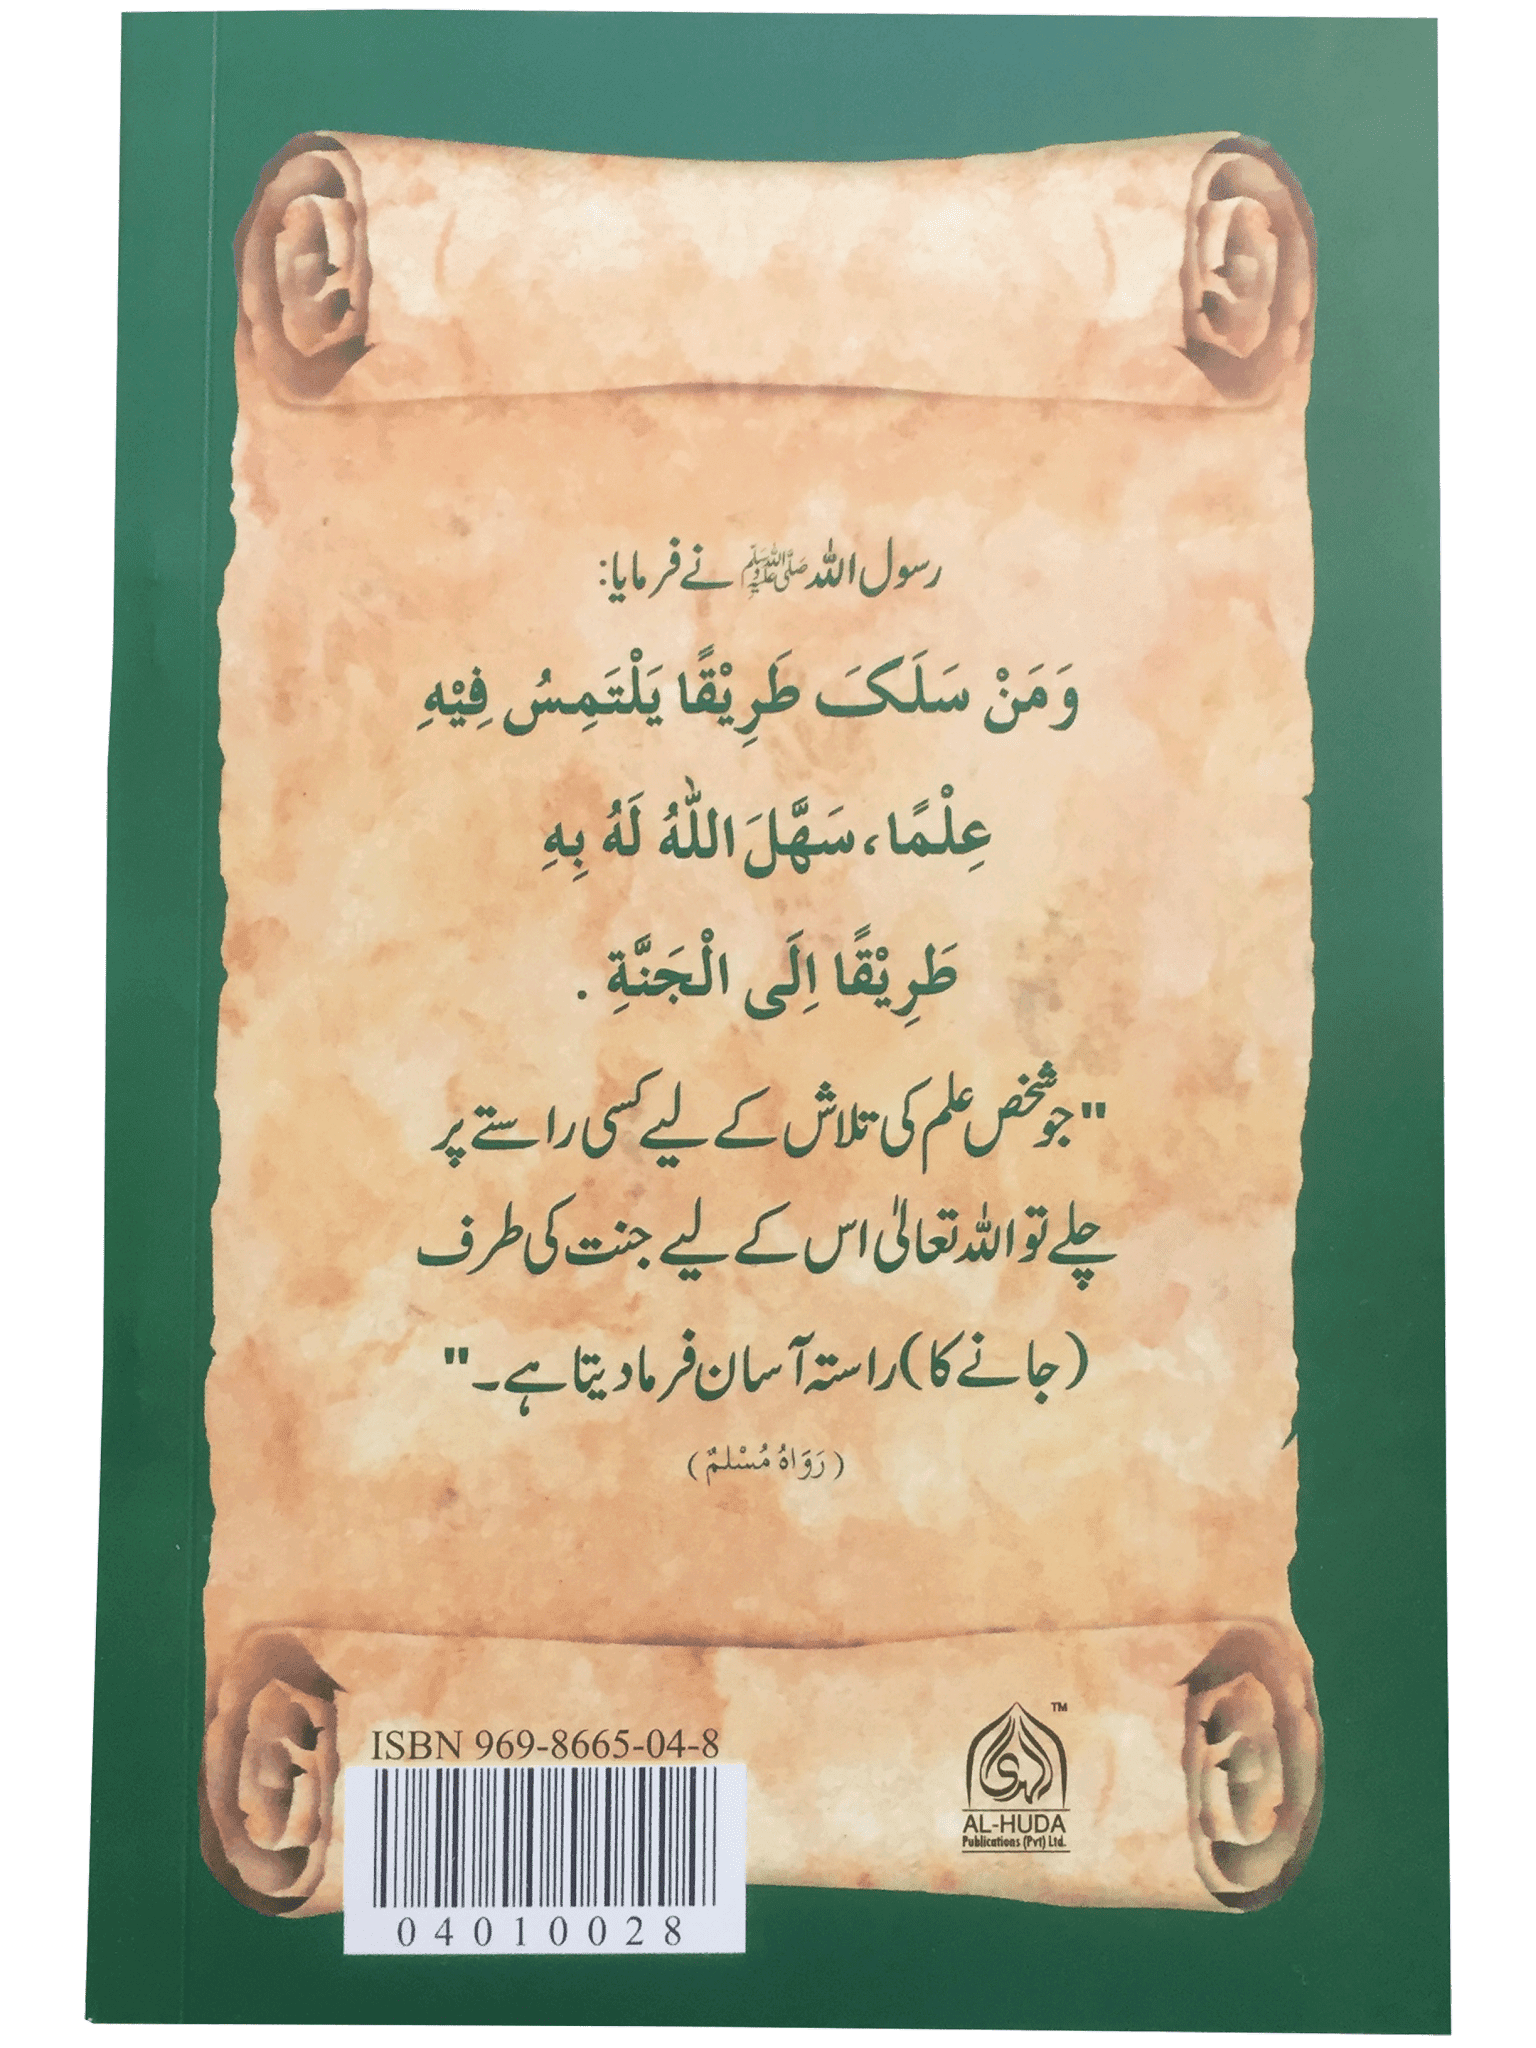 رسول اللہ ﷺ نے فرمایا:
وَمَنْ سَلَکَ طَرِیْقًا یَلْتَمِسُ فِیْهِ
عِلْمًا، سَهَّلَ اللّٰهُ لَهُ بِهِ
طَرِیْقًا اِلَی الْجَنَّةِ .
"جو شخص علم کی تلاش کے لیے کسی راستے پر
چلے تو اللہ تعالیٰ اس کے لیے جنت کی طرف
(جانے کا) راستہ آسان فرما دیتا ہے۔"
(رَوَاهُ مُسْلِمٌ)
ISBN 969-8665-04-8
04010028
TM
الهدى
AL-HUDA
Publications (Pvt) Ltd.